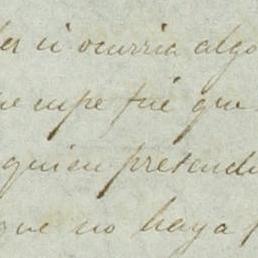 si ocurria algo
supe fué que
quien pretend
que no haya